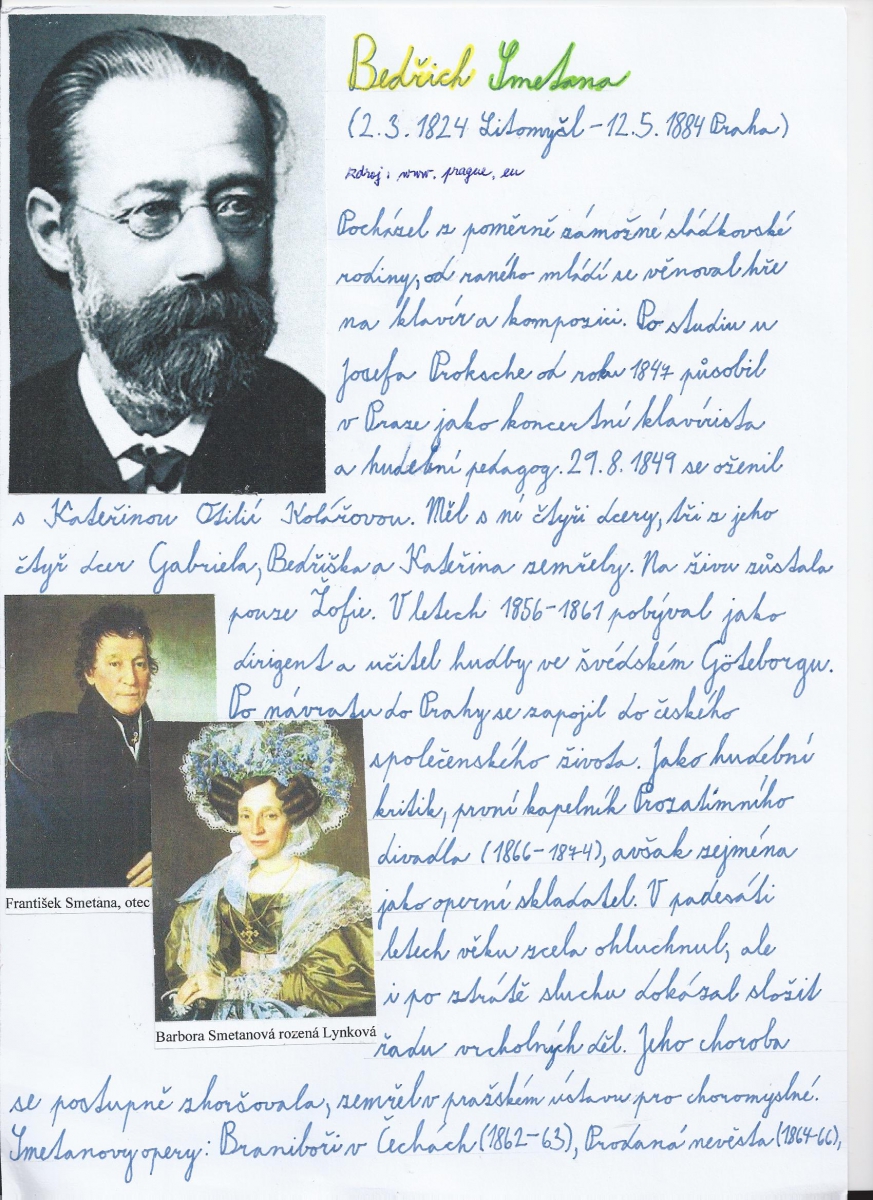 Bedřich Smetana
(2.3. 1824 Litomyšl – 12.5. 1884 Praha)
zdroj: www. prague. eu
Pocházel z poměrně zámožné sládkovské
rodiny, od raného mládí se věnoval hře
na klavír a kompozici. Po studiu u
Josefa Proksche od roku 1847 působil
v Praze jako koncertní klavírista
a hudební pedagog. 29.8. 1849 se oženil
s Kateřinou Otilií Kolářovou. Měl s ní čtyři dcery, tři z jeho
čtyř dcer Gabriela, Bedřiška a Kateřina zemřely. Na živu zůstala
pouze Žofie. V letech 1856–1861 pobýval jako
dirigent a učitel hudby ve švédském Göteborgu.
Po návratu do Prahy se zapojil do českého
společenského života. Jako hudební
kritik, první kapelník Prozatímního
divadla (1866–1874), avšak zejména
jako operní skladatel. V padesáti
letech věku zcela ohluchnul, ale
i po ztrátě sluchu dokázal složit
řadu vrcholných děl. Jeho choroba
František Smetana, otec
Barbora Smetanová rozená Lynková
se postupně zhoršovala, zemřel v pražském ústavu pro choromyslné.
Smetanovy opery: Braniboři v Čechách (1862–63), Prodaná nevěsta (1864–66),